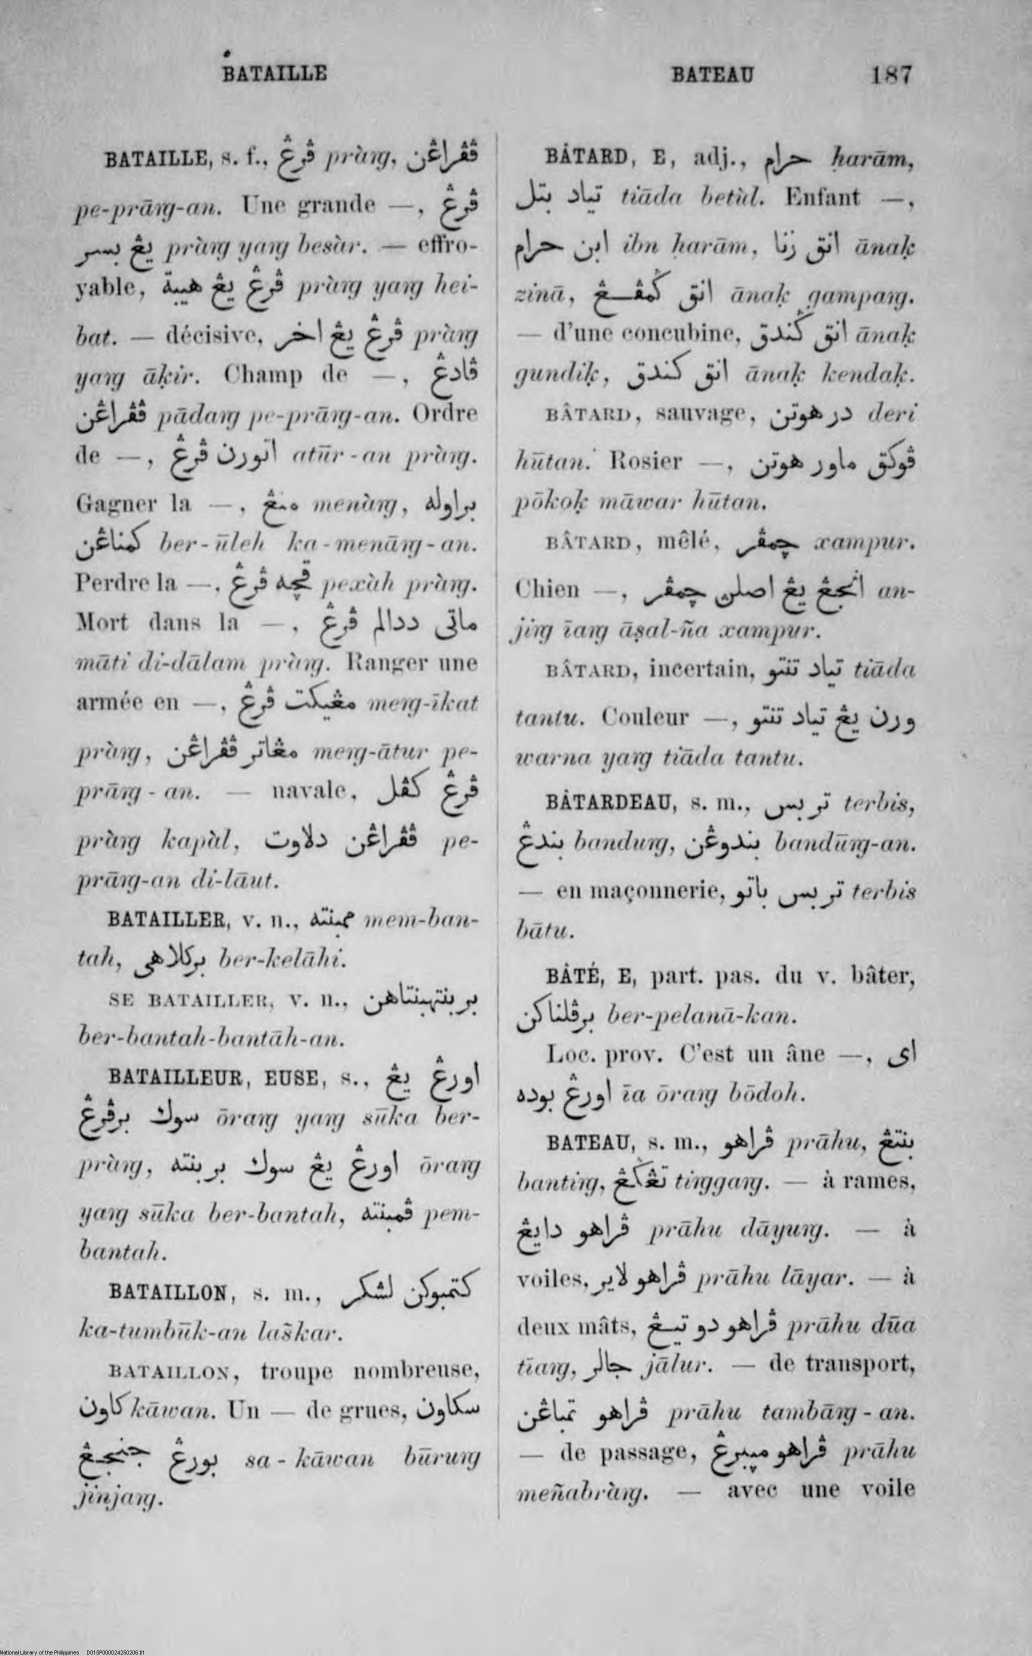 BATAILLE
BATEAU 187
BATAILLE, s. f., ڤرڠ pràrg, ڤڤراڠن
pe-prārg-an. Une grande —, ڤرڠ
يڠ بسر pràrg yarg besàr. — effro-
yable, ڤرڠ يڠ هيبة pràrg yarg hei-
bat. — décisive, ڤرڠ يڠ اخر pràrg
yarg āḳir. Champ de —, ڤادڠ
ڤڤراڠن pādarg pe-prārg-an. Ordre
de —, اتورن ڤرڠ atūr-an pràrg.
Gagner la —, منڠ menàrg, براوله
كمناڠن ber-ūleh ka-menārg-an.
Perdre la —, ڤچه ڤرڠ pexàh pràrg.
Mort dans la —, ماتى ددالم ڤرڠ
māti di-dālam pràrg. Ranger une
armée en —, مڠيكت ڤرڠ merg-īkat
pràrg, مڠاتر ڤڤراڠن merg-ātur pe-
prārg-an. — navale, ڤرڠ كڤل
pràrg kapàl, ڤڤراڠن دلاوت pe-
prārg-an di-lāut.
BATAILLER, v. n., ممبنته mem-ban-
tah, بركلاهى ber-kelāhi.
SE BATAILLER, v. n., بربنتهبنتاهن
ber-bantah-bantāh-an.
BATAILLEUR, EUSE, s., اورڠ يڠ
سوك برڤرڠ ōrarg yarg sūka ber-
pràrg, اورڠ يڠ سوك بربنته ōrarg
yarg sūka ber-bantah, ڤمبنته pem-
bantah.
BATAILLON, s. m., كتمبوكن لشكر
ka-tumbūk-an laškar.
BATAILLON, troupe nombreuse,
كاون kāwan. Un — de grues, سكاون
بورڠ جنجڠ sa-kāwan būrurg
jinjarg.
BÂTARD, E, adj., حرام ḥarām,
تياد بتل tiāda betùl. Enfant —,
ابن حرام ibn ḥarām, انق زنا ānaḳ
zinā, انق گمڤڠ ānaḳ gamparg.
— d'une concubine, انق گندق ānaḳ
gundiḳ, انق كندق ānaḳ kendaḳ.
BÂTARD, sauvage, در هوتن deri
hūtan. Rosier —, ڤوكق ماور هوتن
pōkoḳ māwar hūtan.
BÂTARD, mêlé, چمڤر xampur.
Chien —, انجڠ يڠ اصلن چمڤر an-
jirg īarg āṣal-ña xampur.
BÂTARD, incertain, تياد تنتو tiāda
tantu. Couleur —, ورن يڠ تياد تنتو
warna yarg tiāda tantu.
BÂTARDEAU, s. m., تربس terbis,
بندڠ bandurg, بندوڠن bandūrg-an.
— en maçonnerie, تربس باتو terbis
bātu.
BÂTÉ, E, part. pas. du v. bâter,
برڤلناكن ber-pelanā-kan.
Loc. prov. C'est un âne —, اى
اورڠ بوده īa ōrarg bōdoh.
BATEAU, s. m., ڤراهو prāhu, بنتڠ
bantirg, تڠگڠ tirggarg. — à rames,
ڤراهو دايڠ prāhu dāyurg. — à
voiles, ڤراهو لاير prāhu lāyar. — à
deux mâts, ڤراهو دو تيڠ prāhu dūa
tīarg, جالر jālur. — de transport,
ڤراهو تمباڠن prāhu tambārg-an.
— de passage, ڤراهو ميبرڠ prāhu
meñabràrg. — avec une voile
National Library of the Philippines